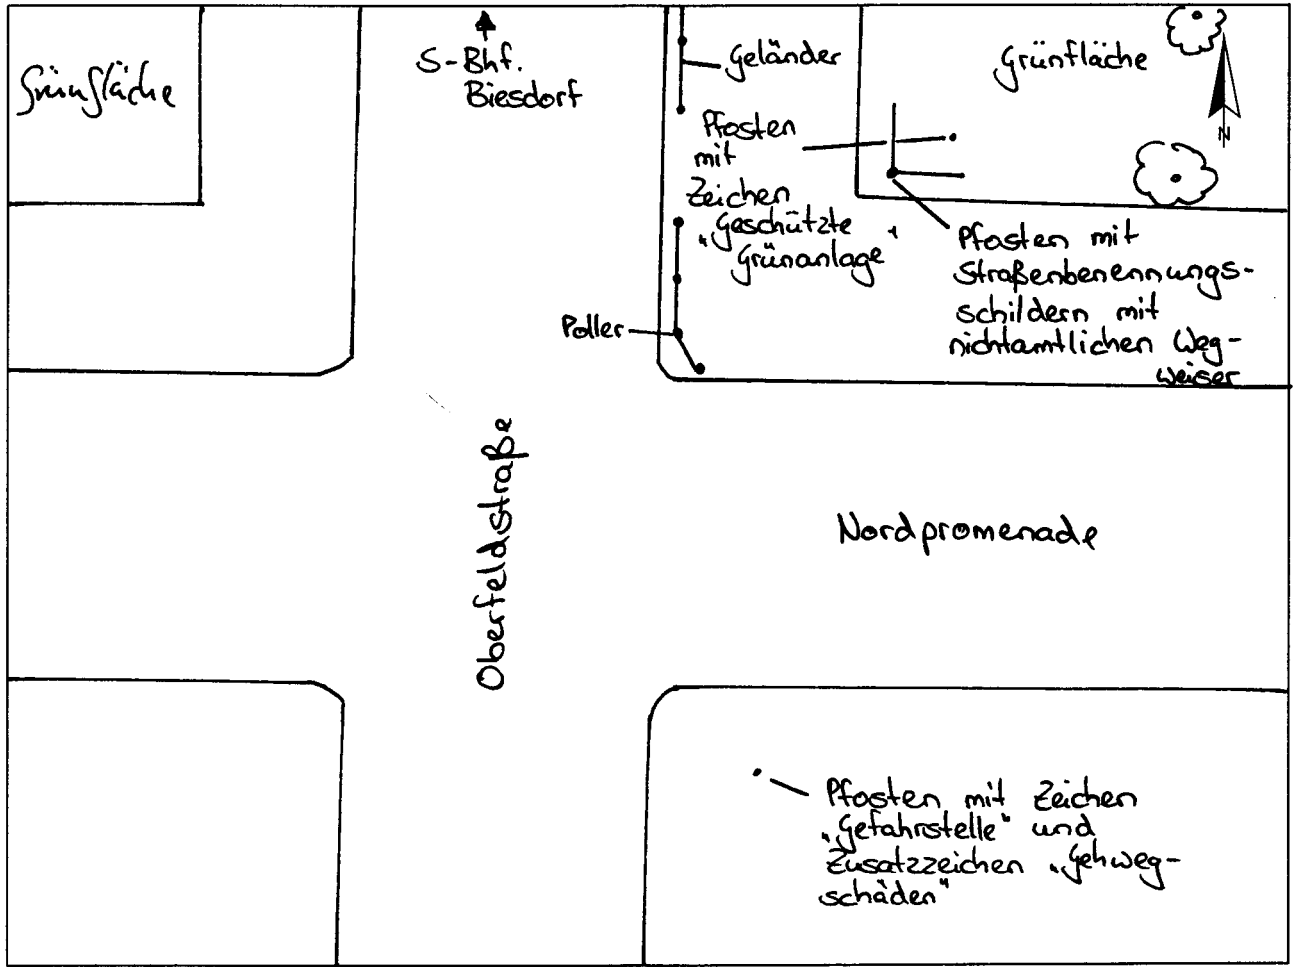 Grünfläche
S-Bhf.
Biesdorf
Geländer
Grünfläche
N
Pfosten
mit
Zeichen
„Geschützte
Grünanlage"
Pfosten mit
Straßenbenennungs-
schildern mit
nichtamtlichen Weg-
weiser
Poller
Oberfeldstraße
Nordpromenade
Pfosten mit Zeichen
„Gefahrstelle" und
Zusatzzeichen „Gehweg-
schäden"